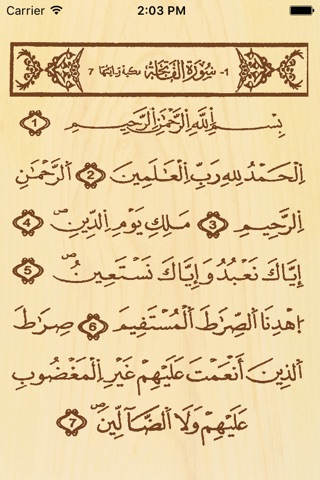 Carrier 2:03 PM
1- سُورَةُ الفَاتِحَة مكية وآياتها 7
بِسْمِ اللَّهِ الرَّحْمَٰنِ الرَّحِيمِ 1
اِلْحَمْدُ لِلهِ رَبِّ اِلْعَٰلَمِينَ 2 اَلرَّحْمَٰنِ
اِلرَّحِيمِ 3 مَلِكِ يَوْمِ اِلدِّينِ ۖ 4
إِيَّاكَ نَعْبُدُ وَإِيَّاكَ نَسْتَعِينُ ۖ 5
اِهْدِنَا اَلصِّرَٰطَ اَلْمُسْتَقِيمَ 6 صِرَٰطَ
اَلذِينَ أَنْعَمْتَ عَلَيْهِمْ غَيْرِ اِلْمَغْضُوبِ
عَلَيْهِمْ وَلَا اَلضَّآلِّينَ ۖ 7